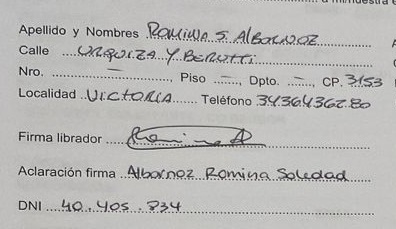 Apellido y Nombres ROMINA S. ALBORNOZ
Calle URQUIZA Y BERUTTI
Nro. —, Piso —, Dpto. —, CP. 3153
Localidad VICTORIA Teléfono 3436436280
Firma librador
Aclaración firma Albornoz Romina Soledad
DNI 40.405.834